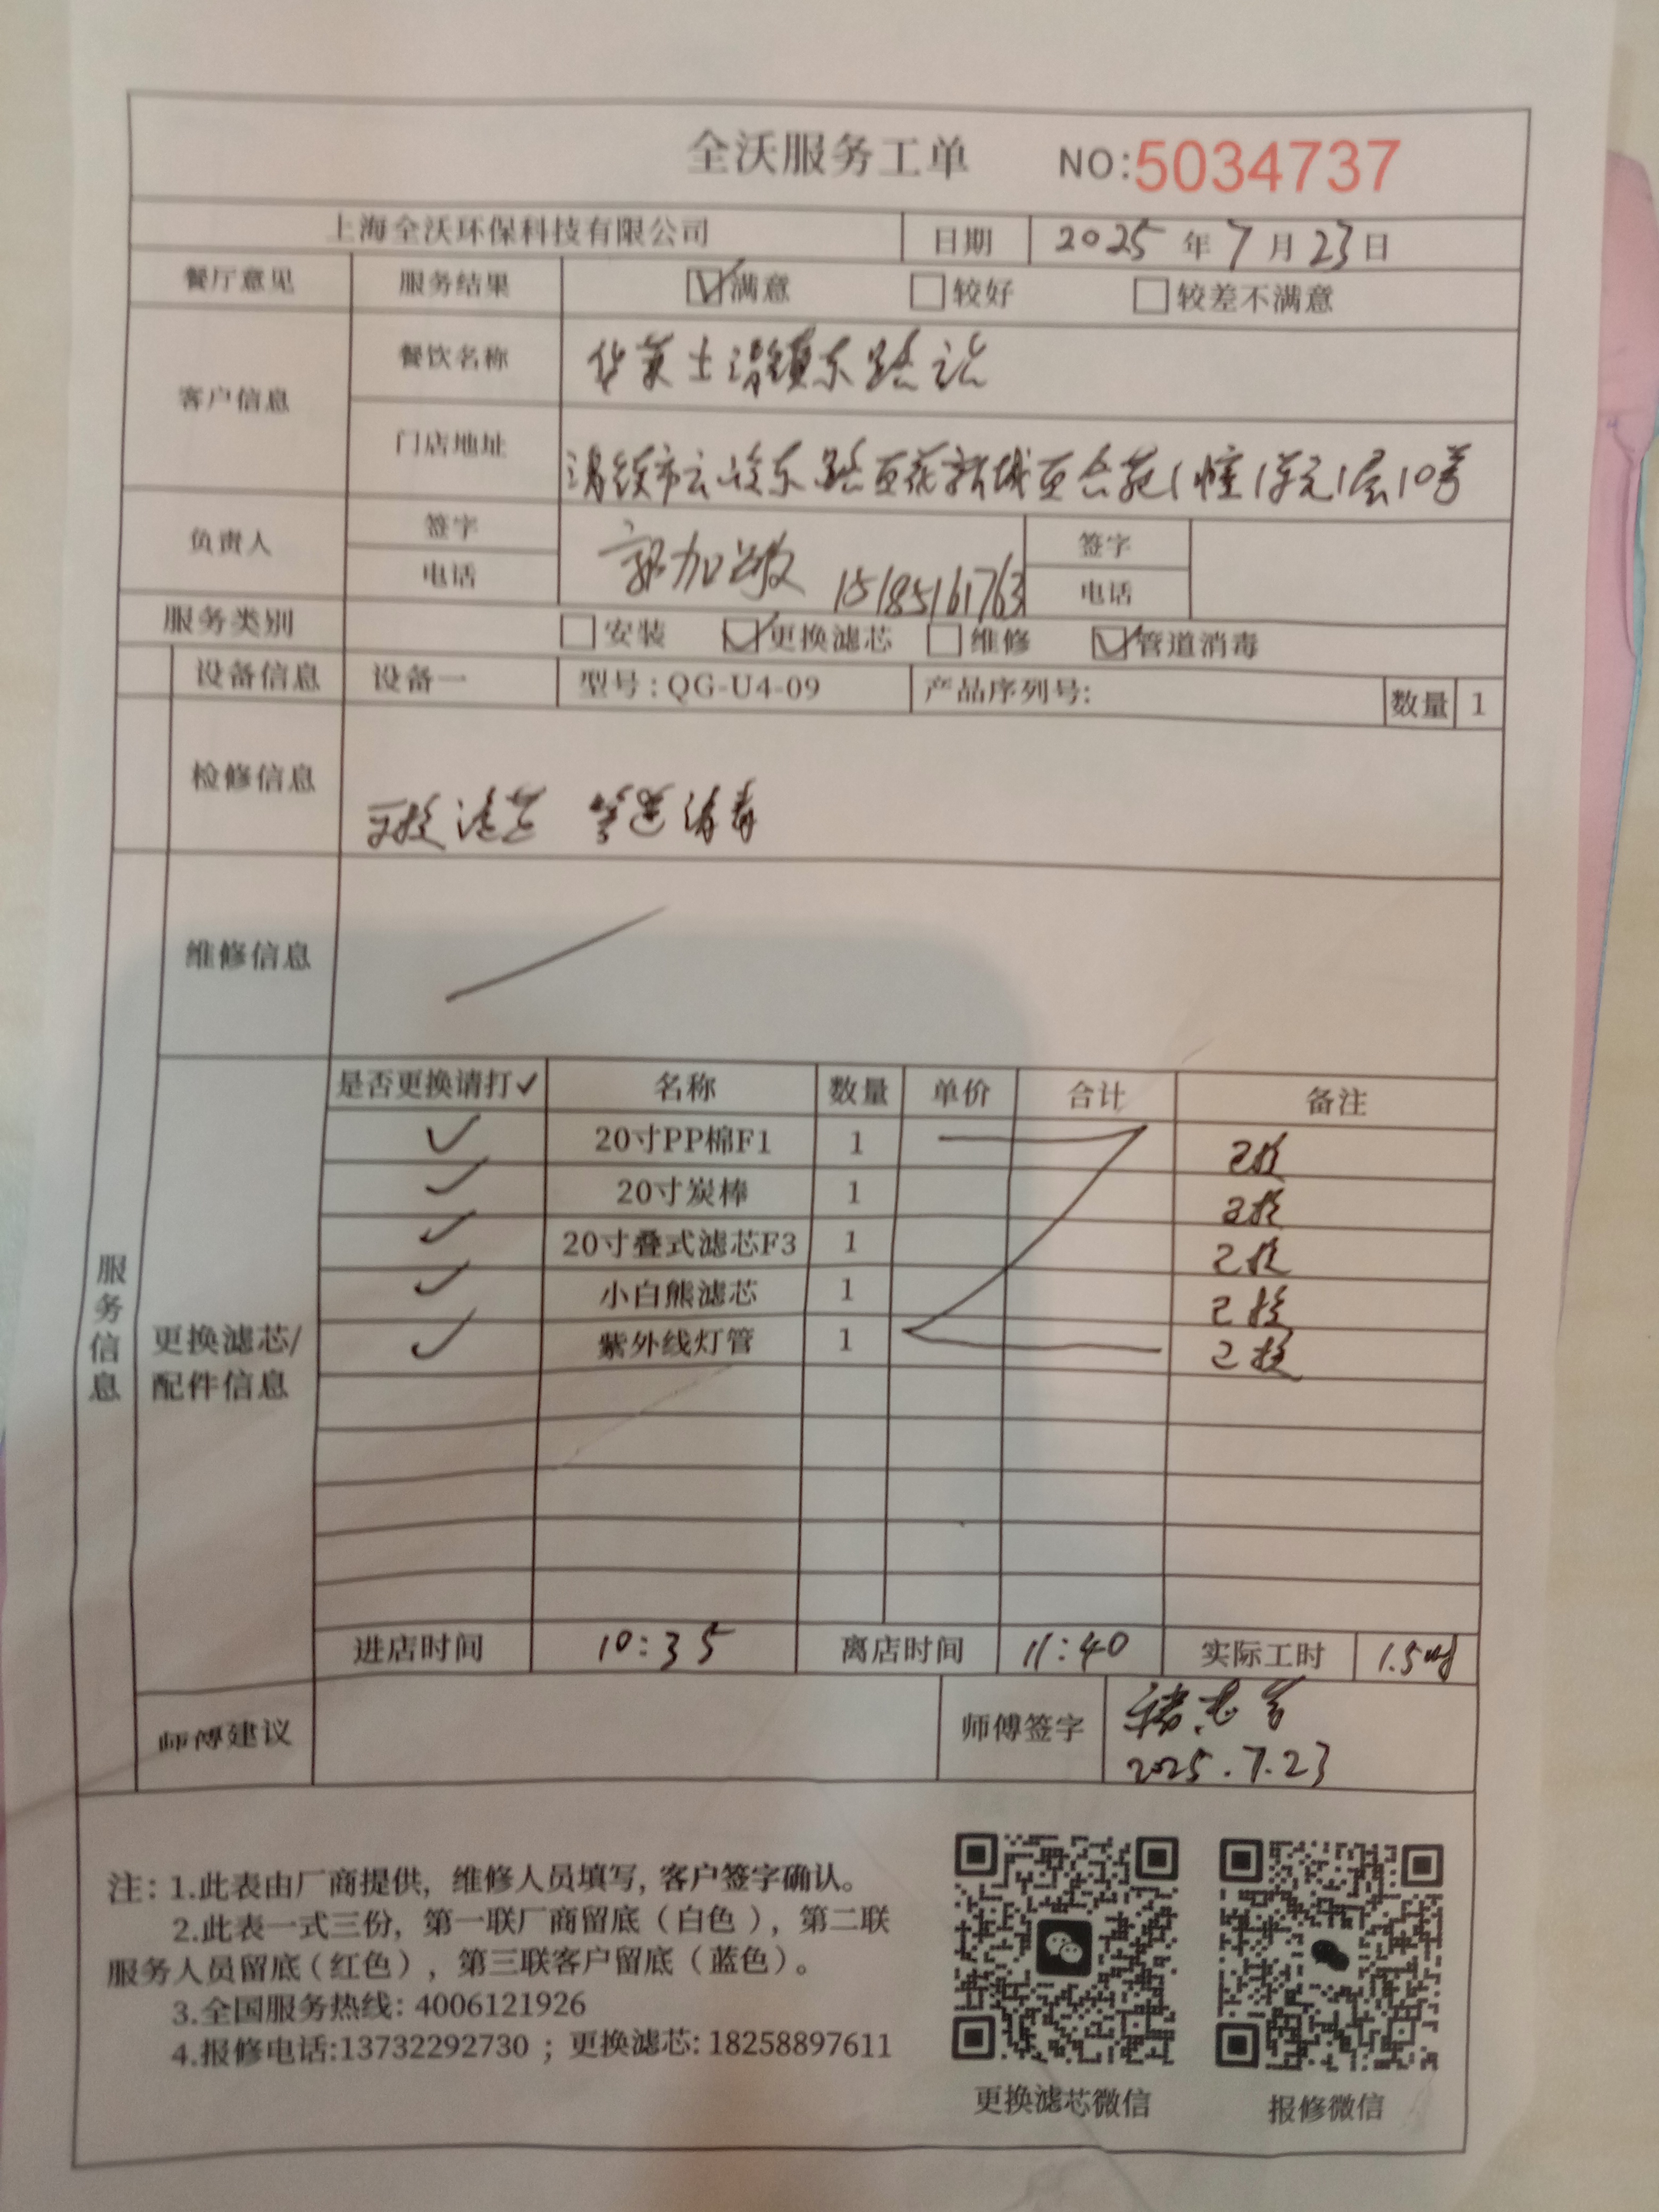 全沃服务工单 NO:5034737
上海全沃环保科技有限公司 日期 2025 年 7 月 23 日
餐厅意见 服务结果 ☑满意 □较好 □较差不满意
客户信息 餐饮名称 华莱士清镇东路店
门店地址 清镇市云岭东路百花新城百合苑1幢1单元1层10号
负责人 签字 郭加敏 签字
电话 15185161763 电话
服务类别 □安装 ☑更换滤芯 □维修 ☑管道消毒
设备信息 设备一 型号:QG-U4-09 产品序列号: 数量 1
检修信息 更换滤芯 管道消毒
维修信息
服务信息
更换滤芯/
配件信息
是否更换请打✓ 名称 数量 单价 合计 备注
✓ 20寸PP棉F1 1 已换
✓ 20寸炭棒 1 已换
✓ 20寸叠式滤芯F3 1 已换
✓ 小白熊滤芯 1 已换
✓ 紫外线灯管 1 已换
进店时间 10:35 离店时间 11:40 实际工时 1.5时
师傅建议 师傅签字
2025.7.23
注: 1.此表由厂商提供, 维修人员填写, 客户签字确认。
2.此表一式三份, 第一联厂商留底(白色), 第二联
服务人员留底(红色), 第三联客户留底(蓝色)。
3.全国服务热线: 4006121926
4.报修电话:13732292730 ; 更换滤芯: 18258897611
更换滤芯微信 报修微信